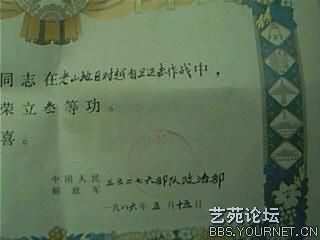 同志在老山地区对越自卫还击作战中，
荣立叁等功。
喜。
中国人民
解放军 三五二七六部队政治部
一九八六年 五月十五日
艺苑论坛
BBS.YOURNET.CN